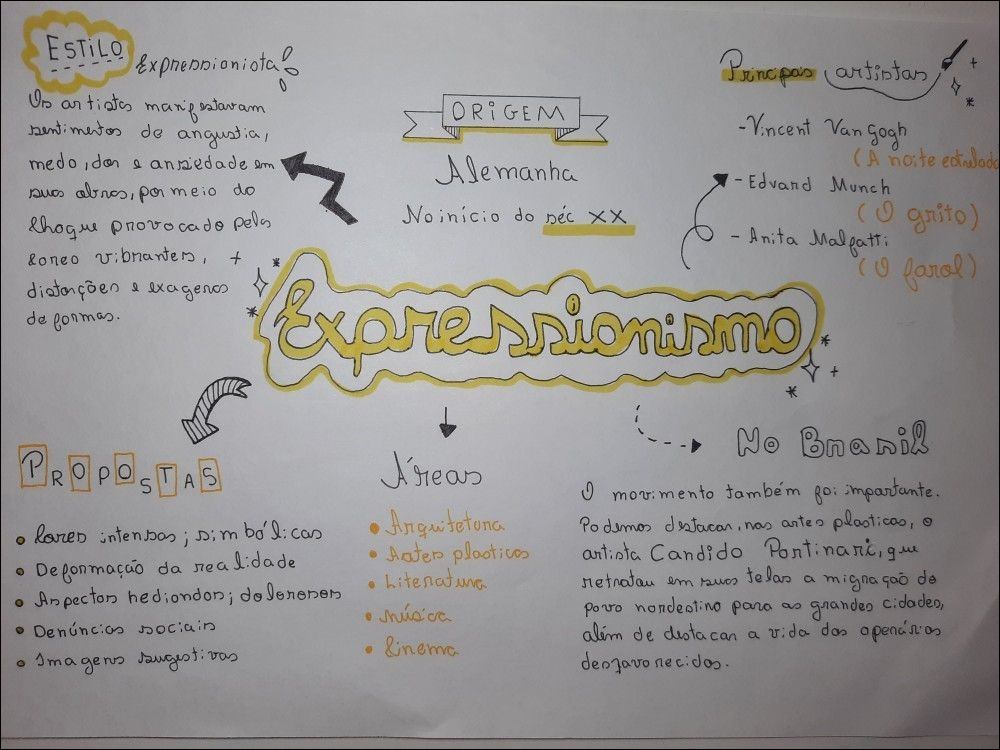 ESTILO
Expressionista
Os artistas manifestavam
sentimentos de angustia,
medo, dor e ansiedade em
suas obras, por meio do
choque provocado pelas
cores vibrantes,
distorções e exageros
de formas.
ORIGEM
Alemanha
No início do séc XX
Principais artistas
- Vincent Van Gogh
(A noite estrelada
- Edvard Munch
(O grito)
- Anita Malfatti
(O farol)
Expressionismo
PROPOSTAS
• Cores intensas; simbólicas
• Deformação da realidade
• Aspectos hediondos; dolorosos
• Denúncias sociais
• Imagens sugestivas
Áreas
• Arquitetura
• Artes plasticas
• Literatura
• música
• Cinema
No Brasil
O movimento também foi importante.
Podemos destacar, nas artes plasticas, o
artista Candido Portinari, que
retratou em suas telas a migração do
povo nordestino para as grandes cidades,
além de destacar a vida dos operários
desfavorecidos.